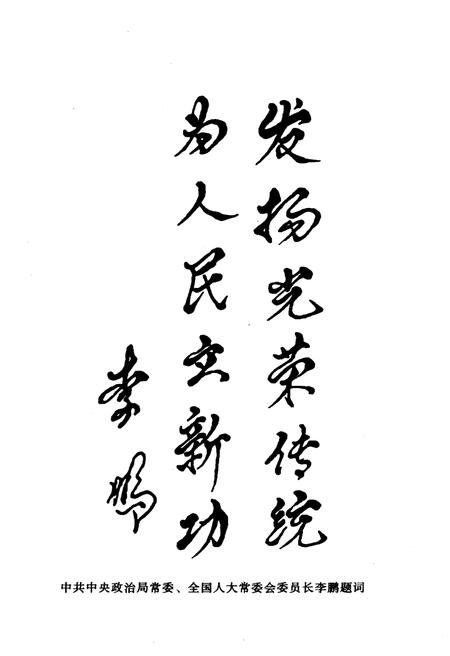 发扬光荣传统
为人民立新功
李鹏
中共中央政治局常委、全国人大常委会委员长李鹏题词